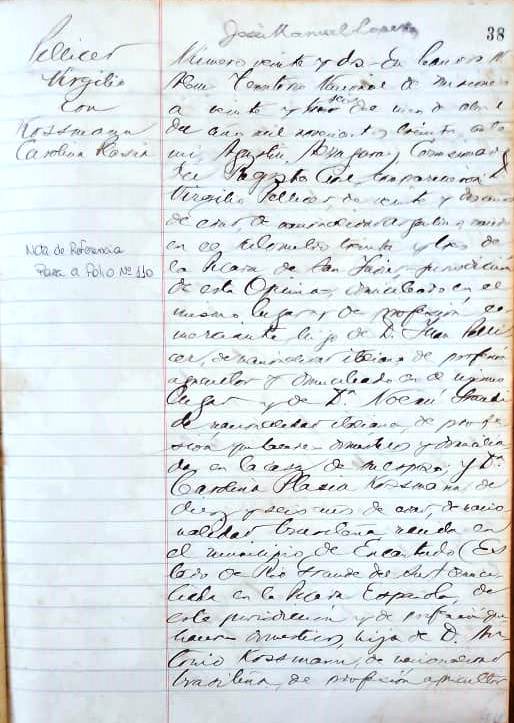 José Manuel
38
Pellicer
Virgilio
con
Kossmann
Carolina Plasia
Nota de Referencia
Pasa a Folio Nº 110
Número veinte y dos - En
Territorio Nacional de Misiones
a veinte y seis del mes de abril
del año mil novecientos treinta, ante
mi, Agustín
del Registro Civil, comparecieron D.
Virgilio Pellicer de veinte y dos años
de edad, de nacionalidad argentino, nacido
en el kilómetro treinta y tres de
la Picada de San Javier, jurisdicción
de esta Oficina, domiciliado en el
mismo lugar, de profesión co-
merciante, hijo de D. Juan Pelli-
cer, de nacionalidad italiano, de profesión
agricultor y domiciliado en el mismo
lugar y de Dª. Noemí
de nacionalidad italiana, de profe-
sión quehaceres domésticos y domicilia-
da en la casa de su esposo. Y Dª.
Carolina Plasia Kossmann, de
diez y seis años de edad, de nacio-
nalidad brasileña, nacida en
el municipio de Encantado (Es-
tado de Rio Grande del Sur) domici-
liada en la Picada Española, de
esta jurisdicción y de profesión que-
haceres domésticos, hija de D. An-
tonio Kossmann, de nacionalidad
brasileña, de profesión agricultor